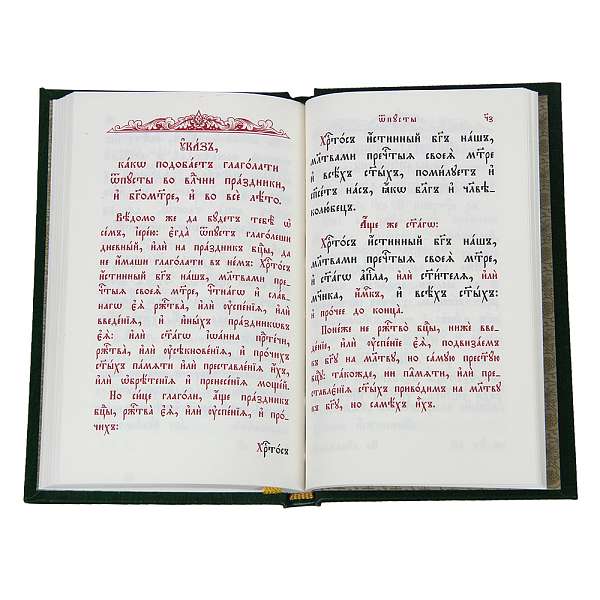 Оу҆ка́зъ,
ка́кѡ подоба́етъ глаго́лати
ѿпꙋ́сты во влⷣчни пра́здники,
и҆ бг҃оро́мтре, и҆ во всѐ лѣ́то.
Вѣ́домо же да бꙋ́детъ тебѣ̀ ѡ҆
се́мъ, і҆ере́ю: є҆гда̀ ѿпꙋ́стъ глаго́леши
дне́вный, и҆лѝ на пра́здникъ бцⷣы, да
не и҆́маши глаго́лати въ не́мъ: Хрⷭ҇то́съ
и҆́стинный бг҃ъ на́шъ, мл҃твами пре-
чⷭ҇тыѧ своеѧ̀ мт҃ре, чⷭ҇тна́гѡ и҆ сла́в-
нагѡ є҆ѧ̀ ржⷭ҇тва̀, и҆лѝ ᲂу҆спе́нїѧ, и҆лѝ
введе́нїѧ, и҆ и҆ны́хъ пра́здникѡвъ
є҆ѧ̀: и҆лѝ ст҃а́гѡ і҆ѡа́нна прⷣте́чи,
ржⷭ҇тва̀, и҆лѝ ᲂу҆сѣкнове́нїѧ, и҆ про́чихъ
ст҃ы́хъ па́мѧти и҆лѝ преставле́нїѧ и҆́хъ,
и҆лѝ ѡ҆брѣ́тенїѧ и҆ пренесе́нїѧ моще́й.
Но си́це глаго́ли, а҆́ще пра́здникъ
бцⷣы, ржⷭ҇тва̀ є҆ѧ̀, и҆лѝ ᲂу҆спе́нїѧ, и҆ про́-
чихъ:
Хрⷭ҇то́съ
ѿпꙋсты̀ ч҃з
Хрⷭ҇то́съ и҆́стинный бг҃ъ на́шъ,
мл҃твами пречⷭ҇тыѧ своеѧ̀ мт҃ре
и҆ всѣ́хъ ст҃ы́хъ, поми́лꙋетъ и҆
сп҃се́тъ на́съ, ꙗ҆́кѡ бл҃гъ и҆ чл҃вѣ-
колю́бецъ.
А҆́ще же ст҃а́гѡ:
Хрⷭ҇то́съ и҆́стинный бг҃ъ на́шъ,
мл҃твами пречⷭ҇тыѧ своеѧ̀ мт҃ре,
и҆ ст҃а́гѡ а҆пⷭ҇ла, и҆лѝ ст҃и́телѧ, и҆лѝ
мч҃нка, и҆́мкъ, и҆ всѣ́хъ ст҃ы́хъ:
и҆ про́чее до конца̀.
Поне́же не ржⷭ҇тво̀ бцⷣы, нижѐ вве-
де́нїе, и҆лѝ ᲂу҆спе́нїе є҆ѧ̀, подвиза́емъ
къ бг҃ꙋ на мл҃твꙋ, но са́мꙋю прест҃ꙋ́ю
бцⷣꙋ: та́кожде, ни па́мѧти, и҆лѝ пре-
ставле́нїѧ ст҃ы́хъ приво́димъ на мл҃твꙋ
къ бг҃ꙋ, но самѣ́хъ и҆́хъ.